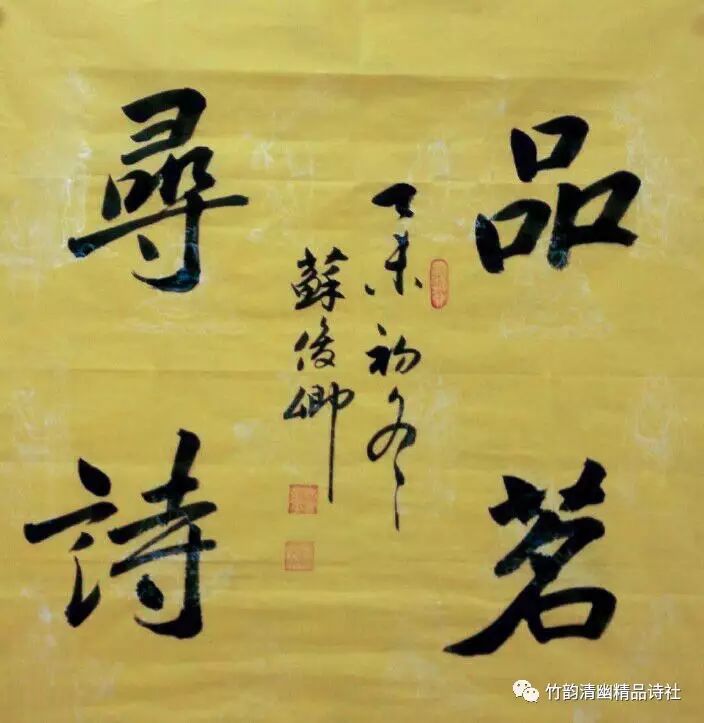 品茗
尋詩
丁未初冬
蘇俊卿
竹韵清幽精品诗社